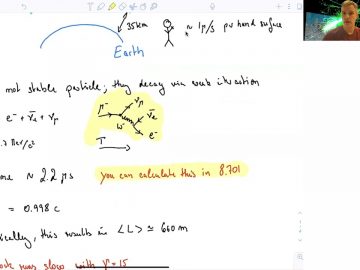 35km
~ 1μ/s per hand surface
Earth
not stable particle; they decay via weak interaction
e⁻ + ν̄e + νμ
μ⁻ νμ
ν̄e
W⁻ e⁻
T
~ 2.2 μs you can calculate this in 8.701
= 0.998 c
, this results in <L> ≃ 660 m
runs slow with γ = 15